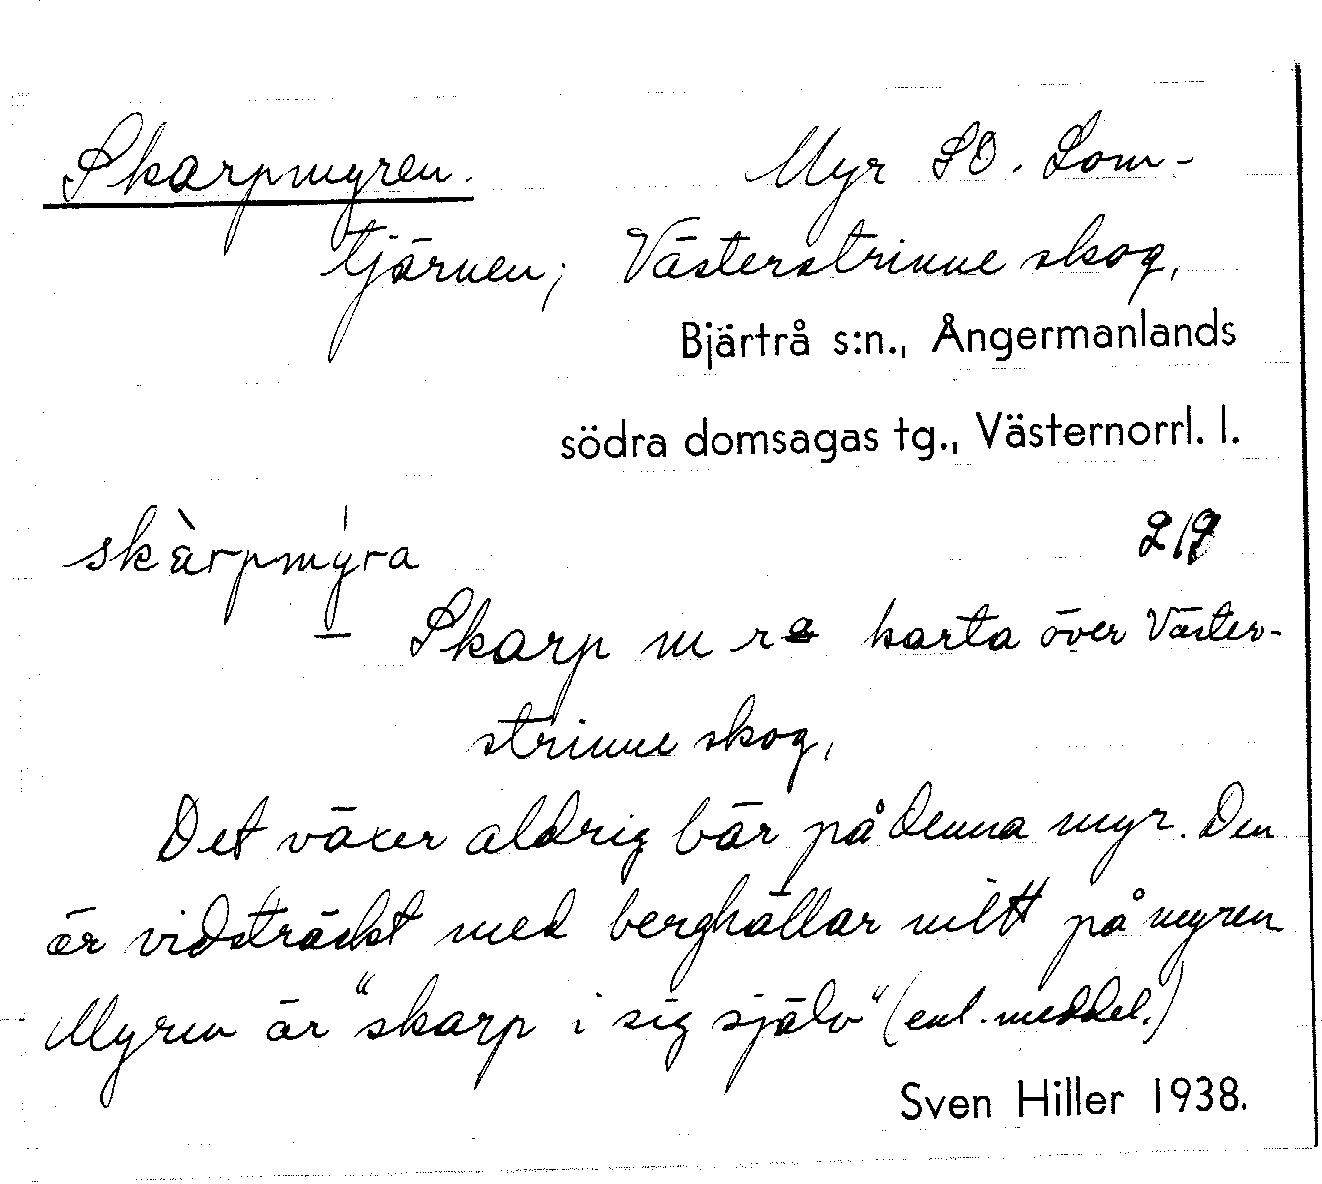 Skarpmyren. Myr SO. Lom-
tjärnen; Västerstrinne skog,
Bjärtrå s:n., Ångermanlands
södra domsagas tg., Västernorrl. l.
skàrpmýra
Skarp m karta över Väster-
strinne skog,
Det växer aldrig bär på denna myr. Den
är vidsträckt med berghällar mitt på myren
Myren är "skarp i sig själv" (enl. meddel.)
Sven Hiller 1938.